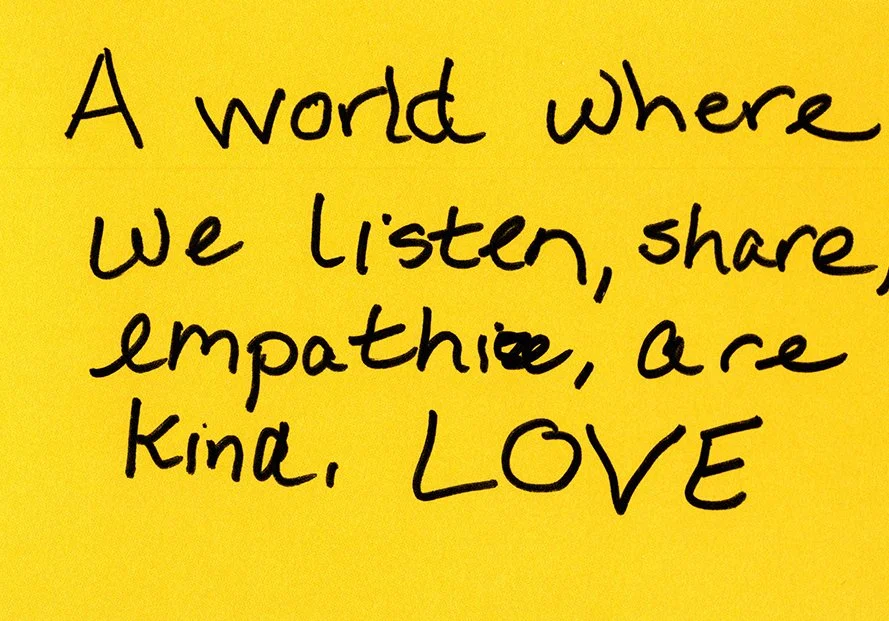 A world where
we listen, share,
empathize, are
kind. LOVE